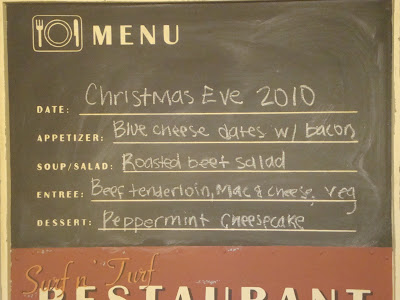 MENU
DATE: Christmas Eve 2010
APPETIZER: Blue cheese dates w/ bacon
SOUP/SALAD: Roasted beet salad
ENTREE: Beef tenderloin, Mac & cheese, veg
DESSERT: Peppermint Cheesecake
Surf n' Turf
RESTAURANT